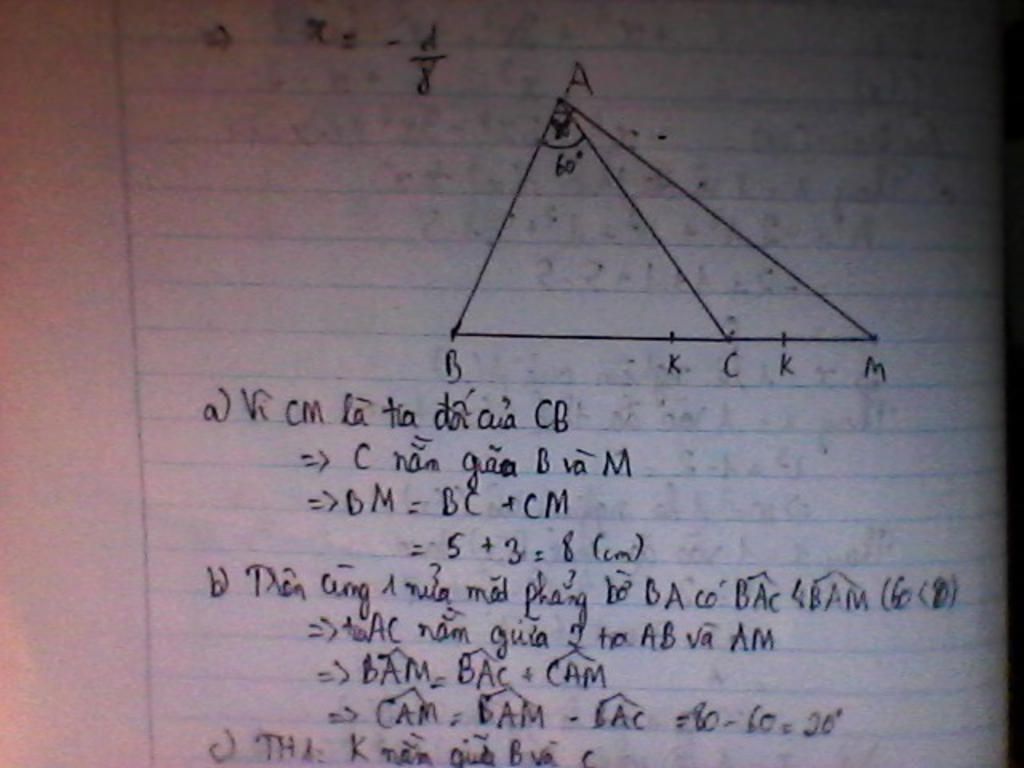 => x = -1/8
A
60°
B K C K M
a) Vì CM là tia đối của CB
=> C nằm giữa B và M
=> BM = BC + CM
= 5 + 3 = 8 (cm)
b) Trên cùng 1 nửa mặt phẳng bờ BA có BAC < BAM (60 < 80)
=> tia AC nằm giữa 2 tia AB và AM
=> BAM = BAC + CAM
=> CAM = BAM - BAC = 80 - 60 = 20°
c) TH1: K nằm giữa B và C